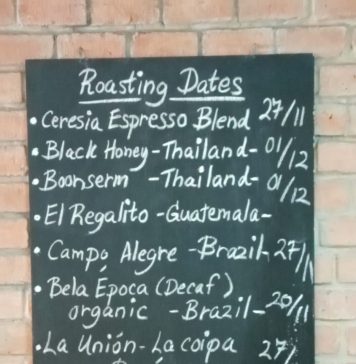 Roasting Dates
• Ceresia Espresso Blend 27/11
• Black Honey - Thailand - 01/12
• Boonserm - Thailand - 01/12
• El Regalito - Guatemala -
• Campo Alegre - Brazil - 27/1
• Bela Época (Decaf)
organic - Brazil - 20/11
• La Unión - La coipa 27